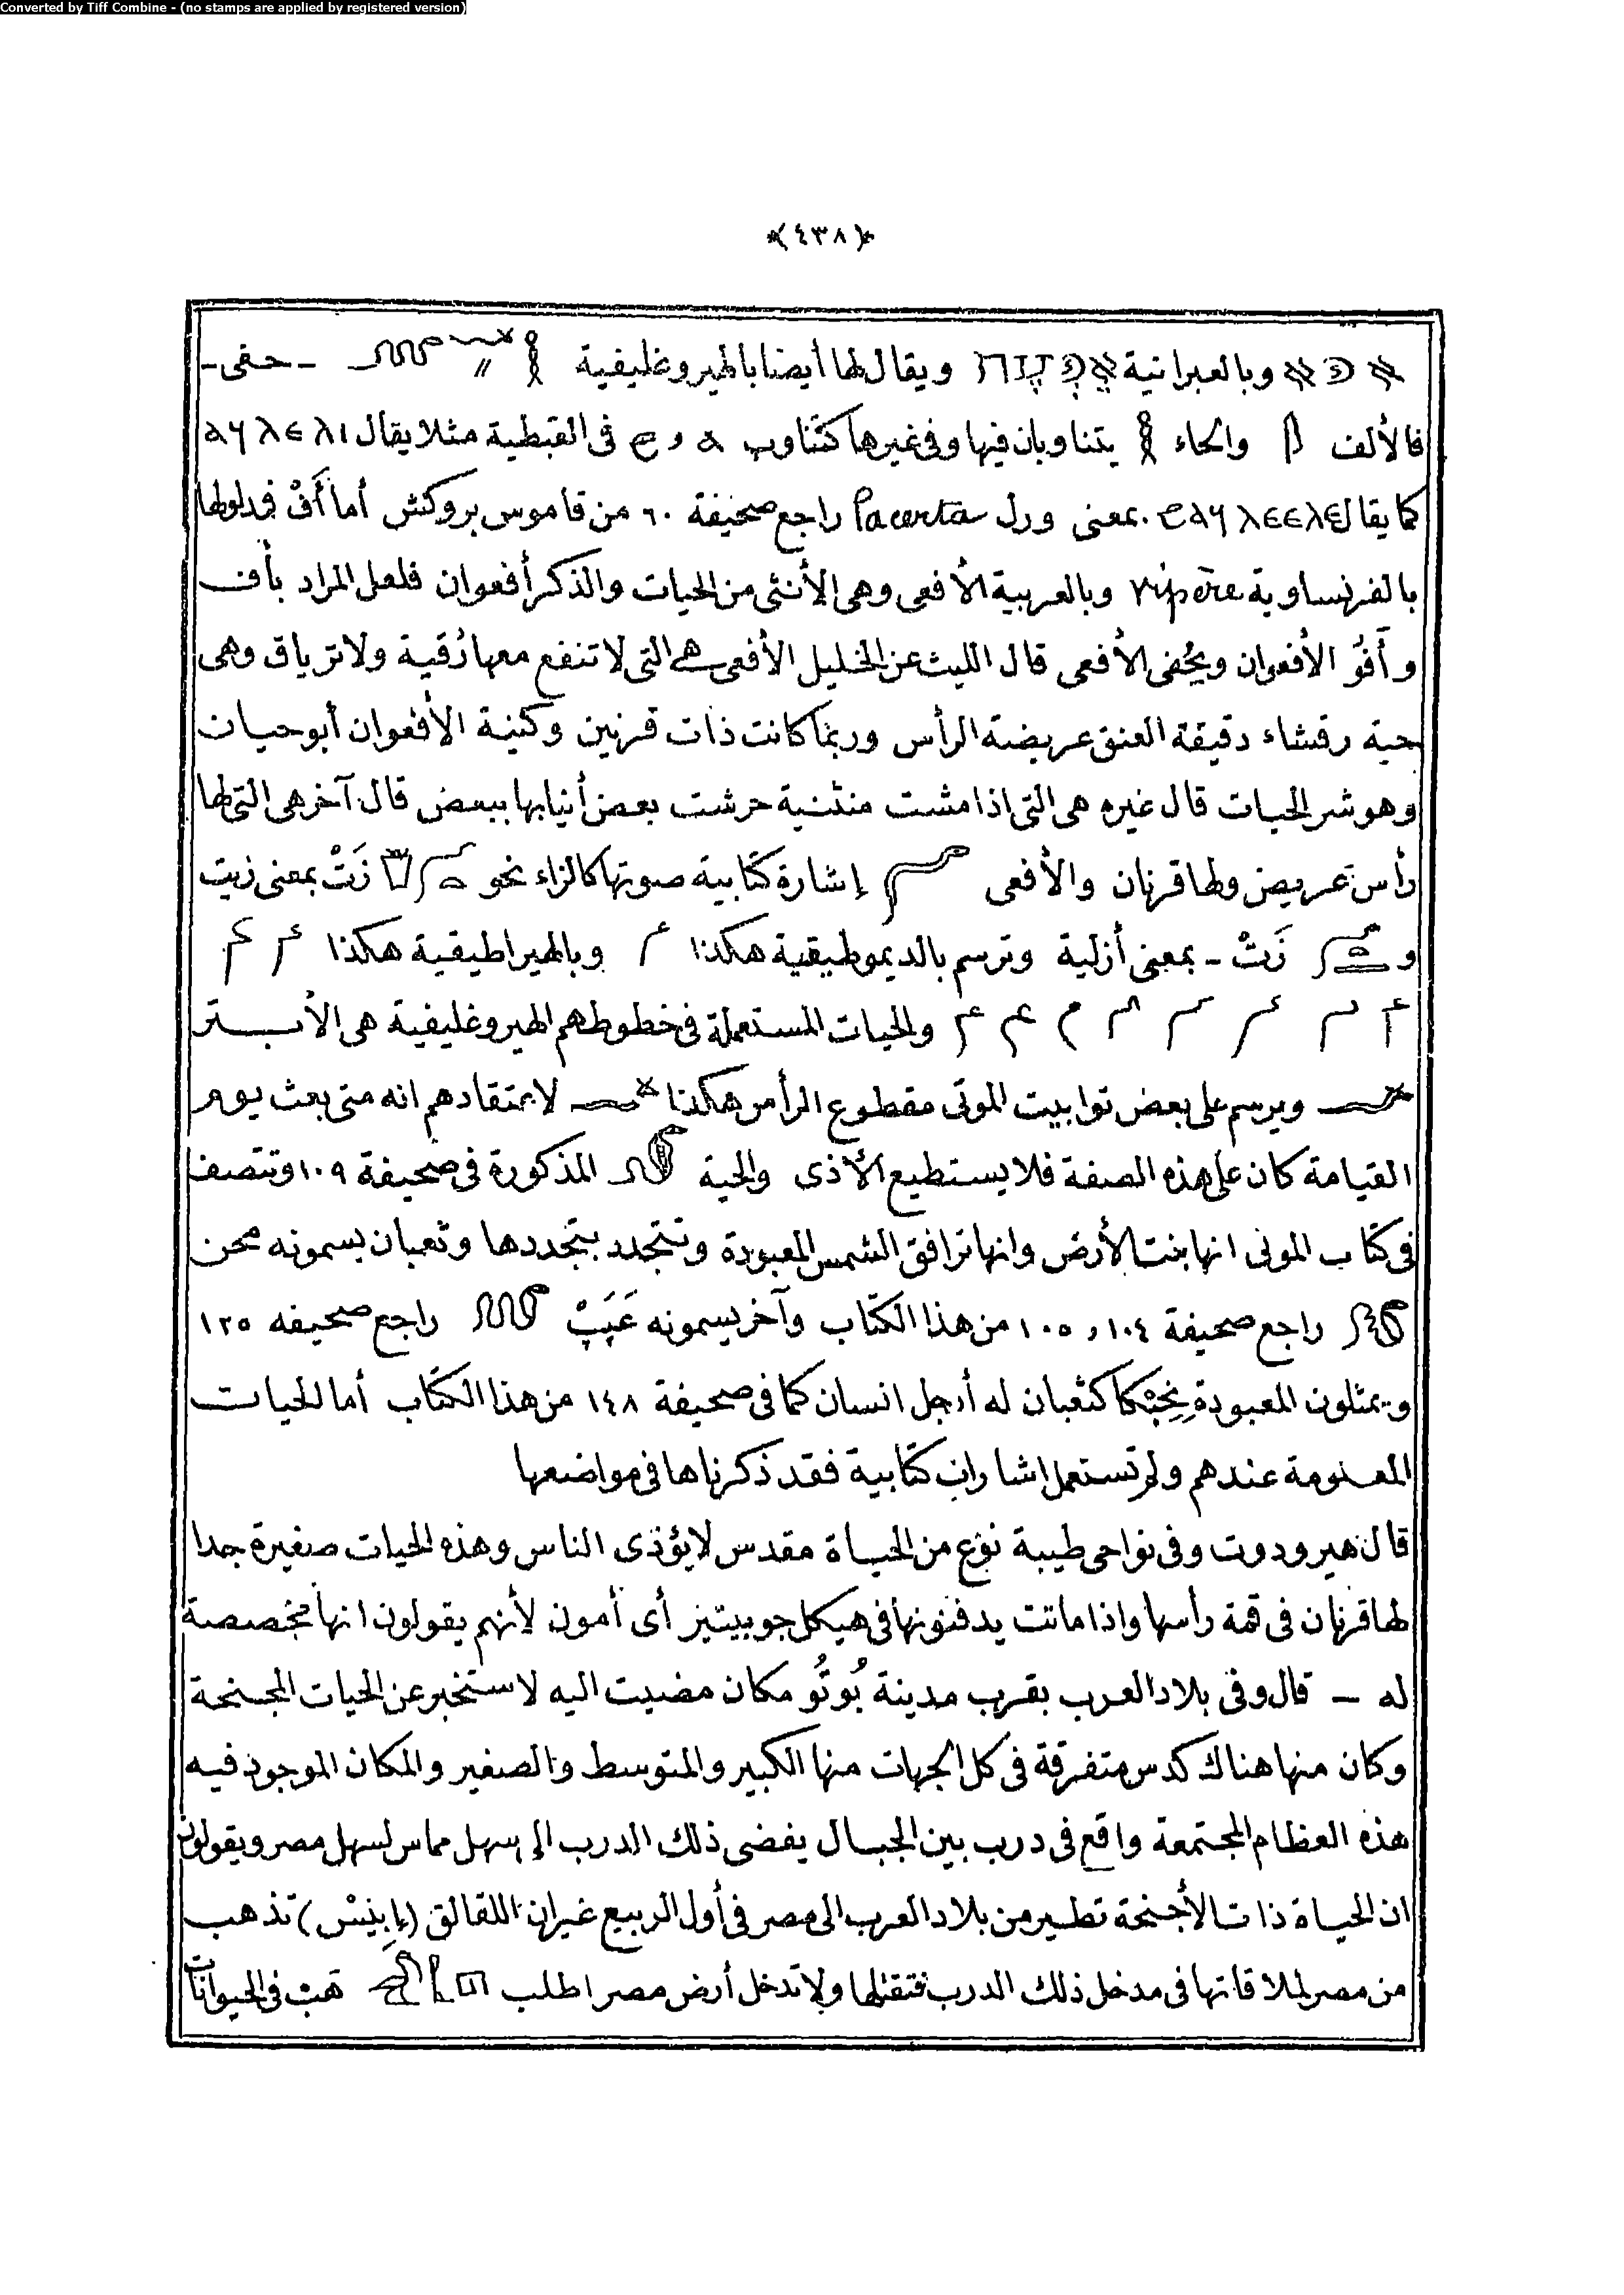 Converted by Tiff Combine - (no stamps are applied by registered version)
﴿٤٣٨﴾
وبالعبرانية ويقال لها أيضا بالهيروغليفية - حفى -
فالألف والحاء يتناوبان فيها وفى غيرها كتناوب فى القبطية مثلا يقال
كما يقال بمعنى ورل راجع صحيفة ٦٠ من قاموس بروكش أما أَفْ فمدلولها
بالفرنساوية vipère وبالعربية الأفعى وهى الأنثى من الحيات والذكر أفعوان فلعل المراد بأف
وأَفوُ الأفعوان وبحُفى الأفعى قال الليث عن الخليل الأفعى هى التى لا تنفع معها رُقية ولا ترياق وهى
حية رقشاء دقيقة العنق عريضة الرأس وربما كانت ذات قرنين وكنية الأفعوان أبو حيات
وهو شر الحيات قال غيره هى التى اذا مشت منثنية حرشت بعض أنيابها ببعض قال آخر هى التى لها
رأس عريض ولها قرنان والأفعى إشارة كتابية صوتها كالزاء نحو زَتْ بمعنى زيت
و زَتْ - بمعنى أزلية وترسم بالديموطيقية هكذا وبالهيراطيقية هكذا
والحيات المستعملة فى خطوطهم الهيروغليفية هى الأبستر
ويرسم على بعض توابيت الموتى مقطوع الرأس هكذا لاعتقادهم انه متى بعث يوم
القيامة كان على هذه الصفة فلا يستطيع الأذى والحية المذكورة فى صحيفة ١٠٩ وتتصف
فى كتاب الموتى انها بنت الأرض وانها ترافق الشمس المعبودة وتتجدد بتجددها وثعبان يسمونه محن
راجع صحيفة ١٠٤ و ١٠٥ من هذا الكتاب وآخر يسمونه عَپَپْ راجع صحيفه ١٢٥
ويمثلون المعبودة كثعبان له أرجل انسان كما فى صحيفة ١٤٨ من هذا الكتاب أما الحيات
المعلومة عندهم ولم تستعمل اشارات كتابية فقد ذكرناها فى مواضعها
قال هيرودوت وفى نواحى طيبة نوع من الحياة مقدس لا يؤذى الناس وهذه الحيات صغيرة جدا
لها قرنان فى قمة رأسها واذا ماتت يدفنونها فى هيكل جوبيتيز أى أمون لأنهم يقولون انها مخصصة
له - قال وفى بلاد العرب بقرب مدينة بُوتُو مكان مضيت اليه لاستخبر عن الحيات المجنحة
وكان منها هناك كدس متفرقة فى كل الجهات منها الكبير والمتوسط والصغير والمكان الموجود فيه
هذه العظام المجتمعة واقع فى درب بين الجبال يفضى ذلك الدرب الى سهل مماس لسهل مصر ويقولون
ان الحياة ذات الأجنحة تطير من بلاد العرب الى مصر فى أول الربيع غير ان اللقالق (إِبِيْسْ) تذهب
من مصر لملاقاتها فى مدخل ذلك الدرب فتقتلها ولا تدخل أرض مصر اطلب هَبْ فى الحيوانات